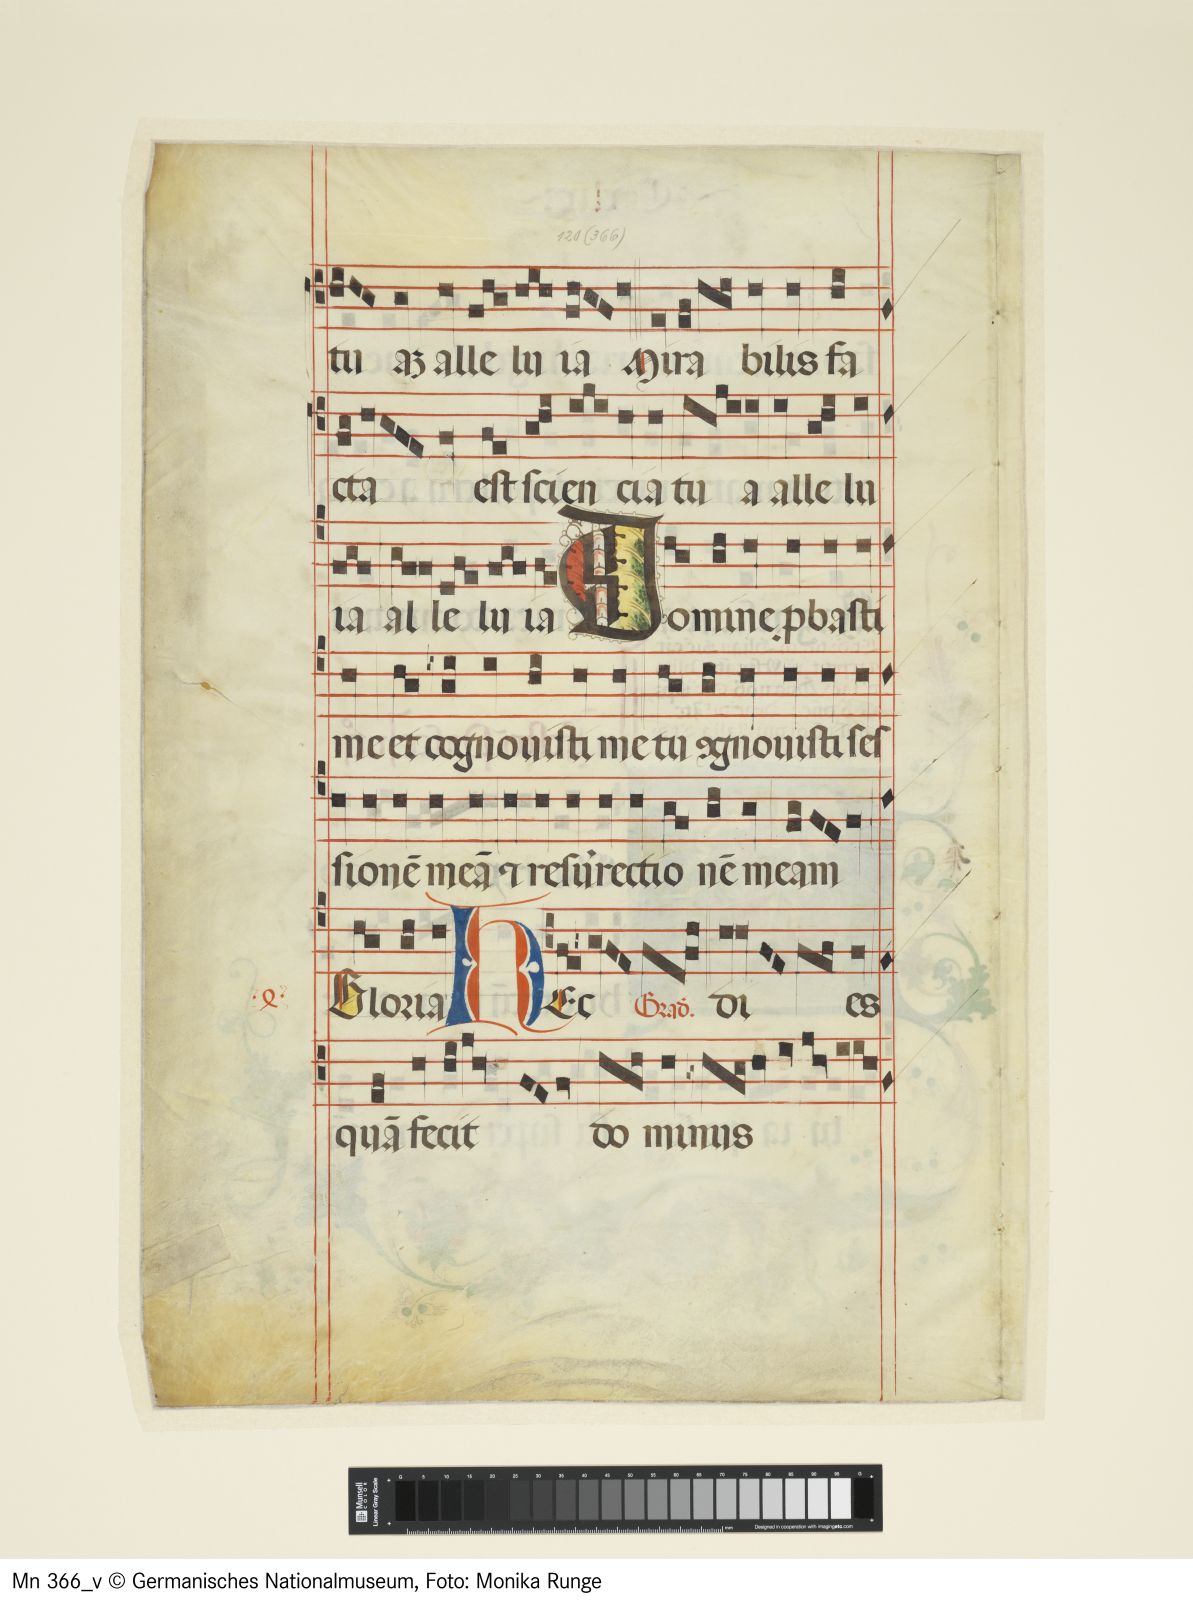 120 (366)
tu aꝫ alle lu ia Mira bilis fa
cta est scien cia tu a alle lu
ia al le lu ia Domine ꝓbasti
me et cognouisti me tu ꝯgnouisti ses
sionē meā ⁊ resurrectio nē meam
·e· Gloria Hec Grad. di es
quā fecit do minus
Munsell
COLOR
Linear Gray Scale
0 5 10 15 20 25 30 35 40 45 50 55 60 65 70 75 80 85 90 95 G
mm Designed in cooperation with imagingetc.com
Mn 366_v © Germanisches Nationalmuseum, Foto: Monika Runge